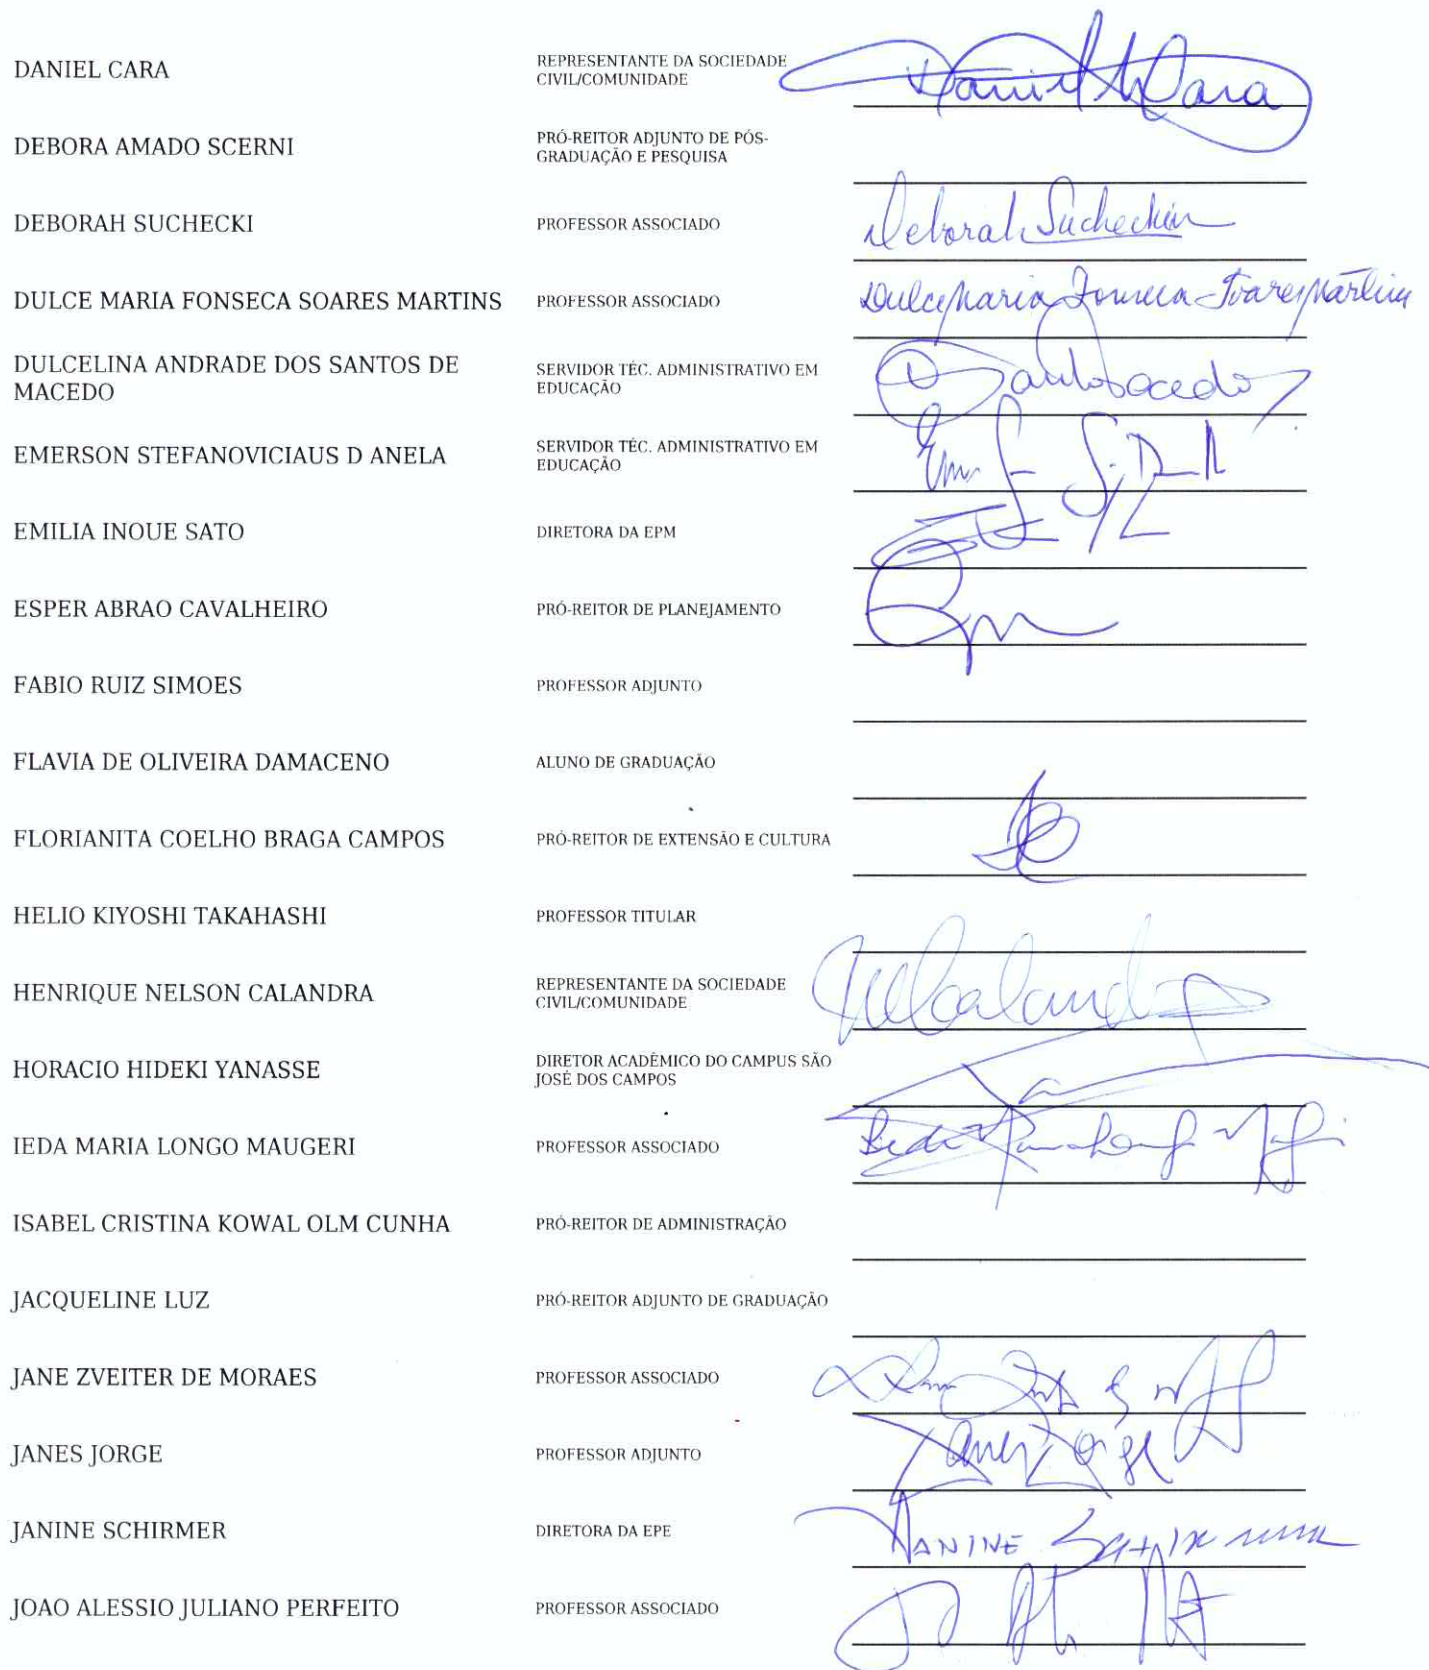 DANIEL CARA
REPRESENTANTE DA SOCIEDADE
CIVIL/COMUNIDADE
Daniel Cara
DEBORA AMADO SCERNI
PRÓ-REITOR ADJUNTO DE PÓS-
GRADUAÇÃO E PESQUISA
DEBORAH SUCHECKI
PROFESSOR ASSOCIADO
Deborah Suchecki
DULCE MARIA FONSECA SOARES MARTINS
PROFESSOR ASSOCIADO
Dulce Maria Fonseca Soares Martins
DULCELINA ANDRADE DOS SANTOS DE
MACEDO
SERVIDOR TÉC. ADMINISTRATIVO EM
EDUCAÇÃO
EMERSON STEFANOVICIAUS D ANELA
SERVIDOR TÉC. ADMINISTRATIVO EM
EDUCAÇÃO
EMILIA INOUE SATO
DIRETORA DA EPM
ESPER ABRAO CAVALHEIRO
PRÓ-REITOR DE PLANEJAMENTO
FABIO RUIZ SIMOES
PROFESSOR ADJUNTO
FLAVIA DE OLIVEIRA DAMACENO
ALUNO DE GRADUAÇÃO
FLORIANITA COELHO BRAGA CAMPOS
PRÓ-REITOR DE EXTENSÃO E CULTURA
HELIO KIYOSHI TAKAHASHI
PROFESSOR TITULAR
HENRIQUE NELSON CALANDRA
REPRESENTANTE DA SOCIEDADE
CIVIL/COMUNIDADE
HORACIO HIDEKI YANASSE
DIRETOR ACADÊMICO DO CAMPUS SÃO
JOSÉ DOS CAMPOS
IEDA MARIA LONGO MAUGERI
PROFESSOR ASSOCIADO
ISABEL CRISTINA KOWAL OLM CUNHA
PRÓ-REITOR DE ADMINISTRAÇÃO
JACQUELINE LUZ
PRÓ-REITOR ADJUNTO DE GRADUAÇÃO
JANE ZVEITER DE MORAES
PROFESSOR ASSOCIADO
JANES JORGE
PROFESSOR ADJUNTO
Janes Jorge
JANINE SCHIRMER
DIRETORA DA EPE
JANINE SCHIRMER
JOAO ALESSIO JULIANO PERFEITO
PROFESSOR ASSOCIADO